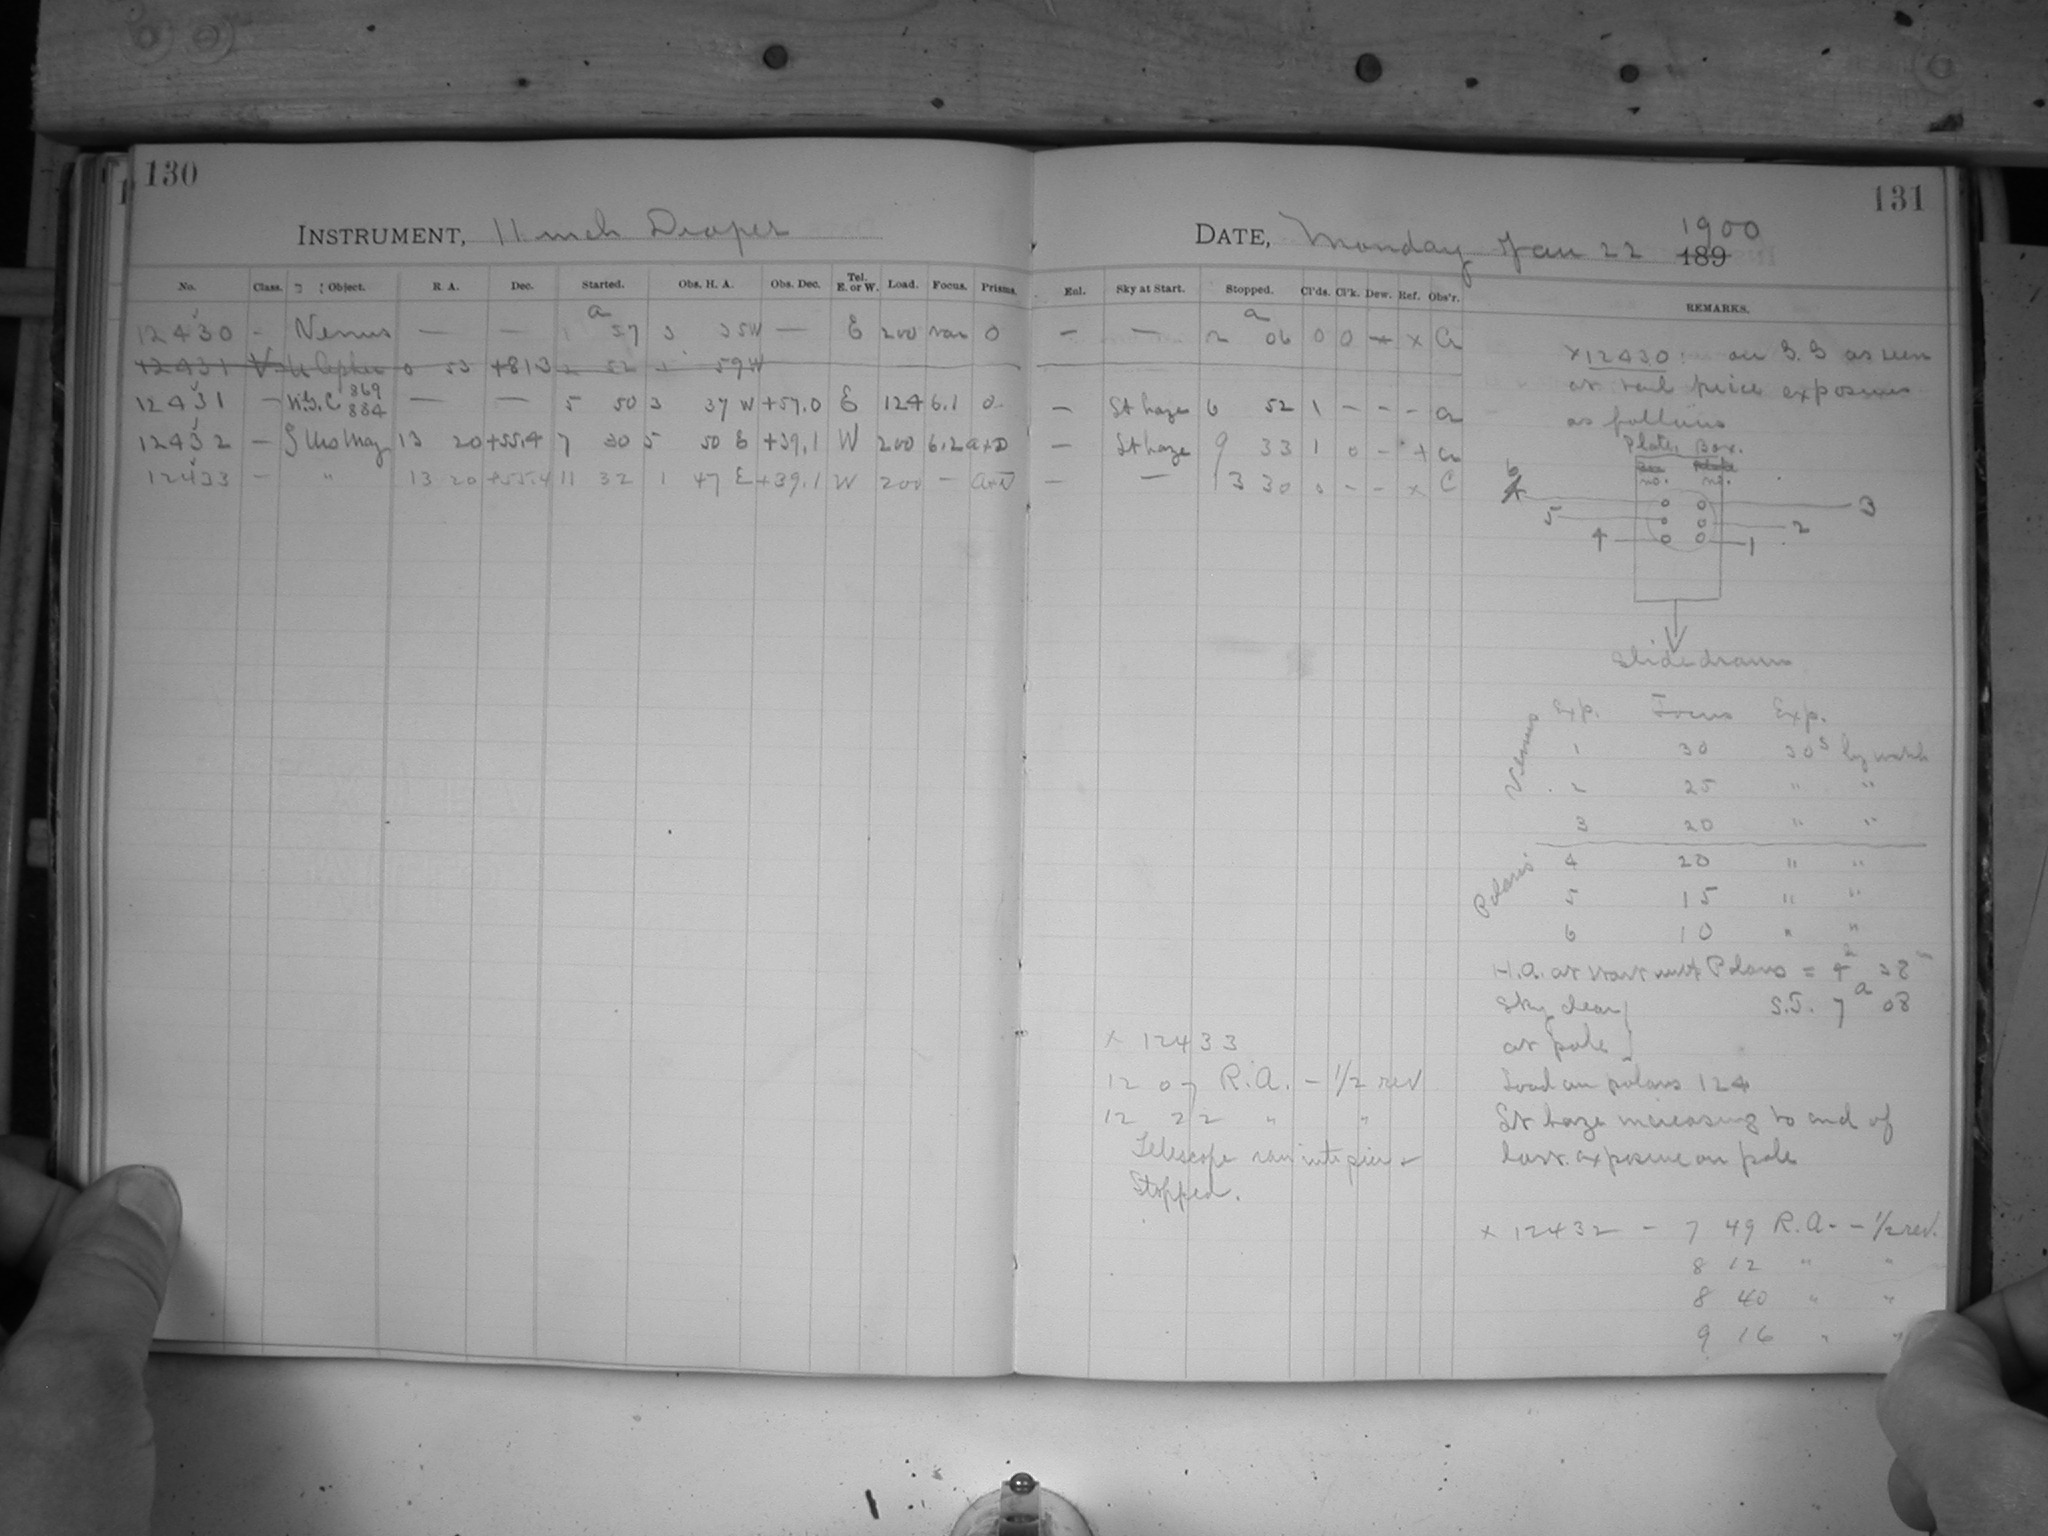 130
INSTRUMENT, 11 inch Draper
No. Class. Object. R A. Dec. Started. Obs. H. A. Obs. Dec. Tel. E. or W. Load. Focus. Prisms.
12430 - Venus — — 1 a 57 3 35W — E 200 var 0
12431 V U Cephei 0 53 +81.3 2 52 1 59W
12431 - N.G.C 869 884 — — 5 50 3 37 W +57.0 E 124 6.1 0
12432 - ζ Urs Maj 13 20 +55.4 7 30 5 50 E +39.1 W 200 6.2 a+D
12433 - " 13 20 +55.4 11 32 1 47 E +39.1 W 200 -
131
DATE, Monday Jan 22 1900 189
Enl. Sky at Start. Stopped. Cl'ds. Cl'k. Dew. Ref. Obs'r. REMARKS.
— — 2 a 06 0 0 - x a
— St haze 6 52 1 - - - a
— St haze 9 33 1 0 - + a
— — 13 30 0 - - x C
x12430: on S.S as seen
at tail piece exposures
as follows
Plate, Box.
no. no.
6 3
5 2
4 1
Slide draws
Exp. Focus Exp.
Venus
1 30 30s by watch
2 25 " "
3 20 " "
Polaris
4 20 " "
5 15 " "
6 10 " "
H.A. at start with Polaris = 4h 38m
Sky clear S.T. 7 a 08
at pole
Load on polaris 124
St haze increasing to end of
last exposure on pole
x 12433
12 07 R.A. - 1/2 rev
12 22 " "
Telescope ran into pier &
Stopped.
x 12432 - 7 49 R.A. - 1/2 rev.
8 12 " "
8 40 " "
9 16 " "